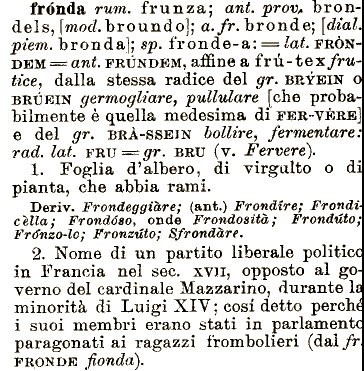 frónda rum. frunza; ant. prov. bron-
dels, [mod. broundo]; a. fr. bronde; [dial.
piem. bronda]; sp. fronde-a: = lat. FRÒN-
DEM = ant. FRÚNDEM, affine a frú-tex fru-
tice, dalla stessa radice del gr. BRÝEIN O
BRÚEIN germogliare, pullulare [che proba-
bilmente è quella medesima di FER-VÈRE]
e del gr. BRÀ-SSEIN bollire, fermentare:
rad. lat. FRU = gr. BRU (v. Fervere).
1. Foglia d'albero, di virgulto o di
pianta, che abbia rami.
Deriv. Frondeggiàre; (ant.) Frondíre; Frondi-
cèlla; Frondóso, onde Frondosità; Frondúto;
Frónzo-lo; Fronzúto; Sfrondàre.
2. Nome di un partito liberale politico
in Francia nel sec. XVII, opposto al go-
verno del cardinale Mazzarino, durante la
minorità di Luigi XIV; cosí detto perché
i suoi membri erano stati in parlamento
paragonati ai ragazzi frombolieri (dal fr.
FRONDE fionda).